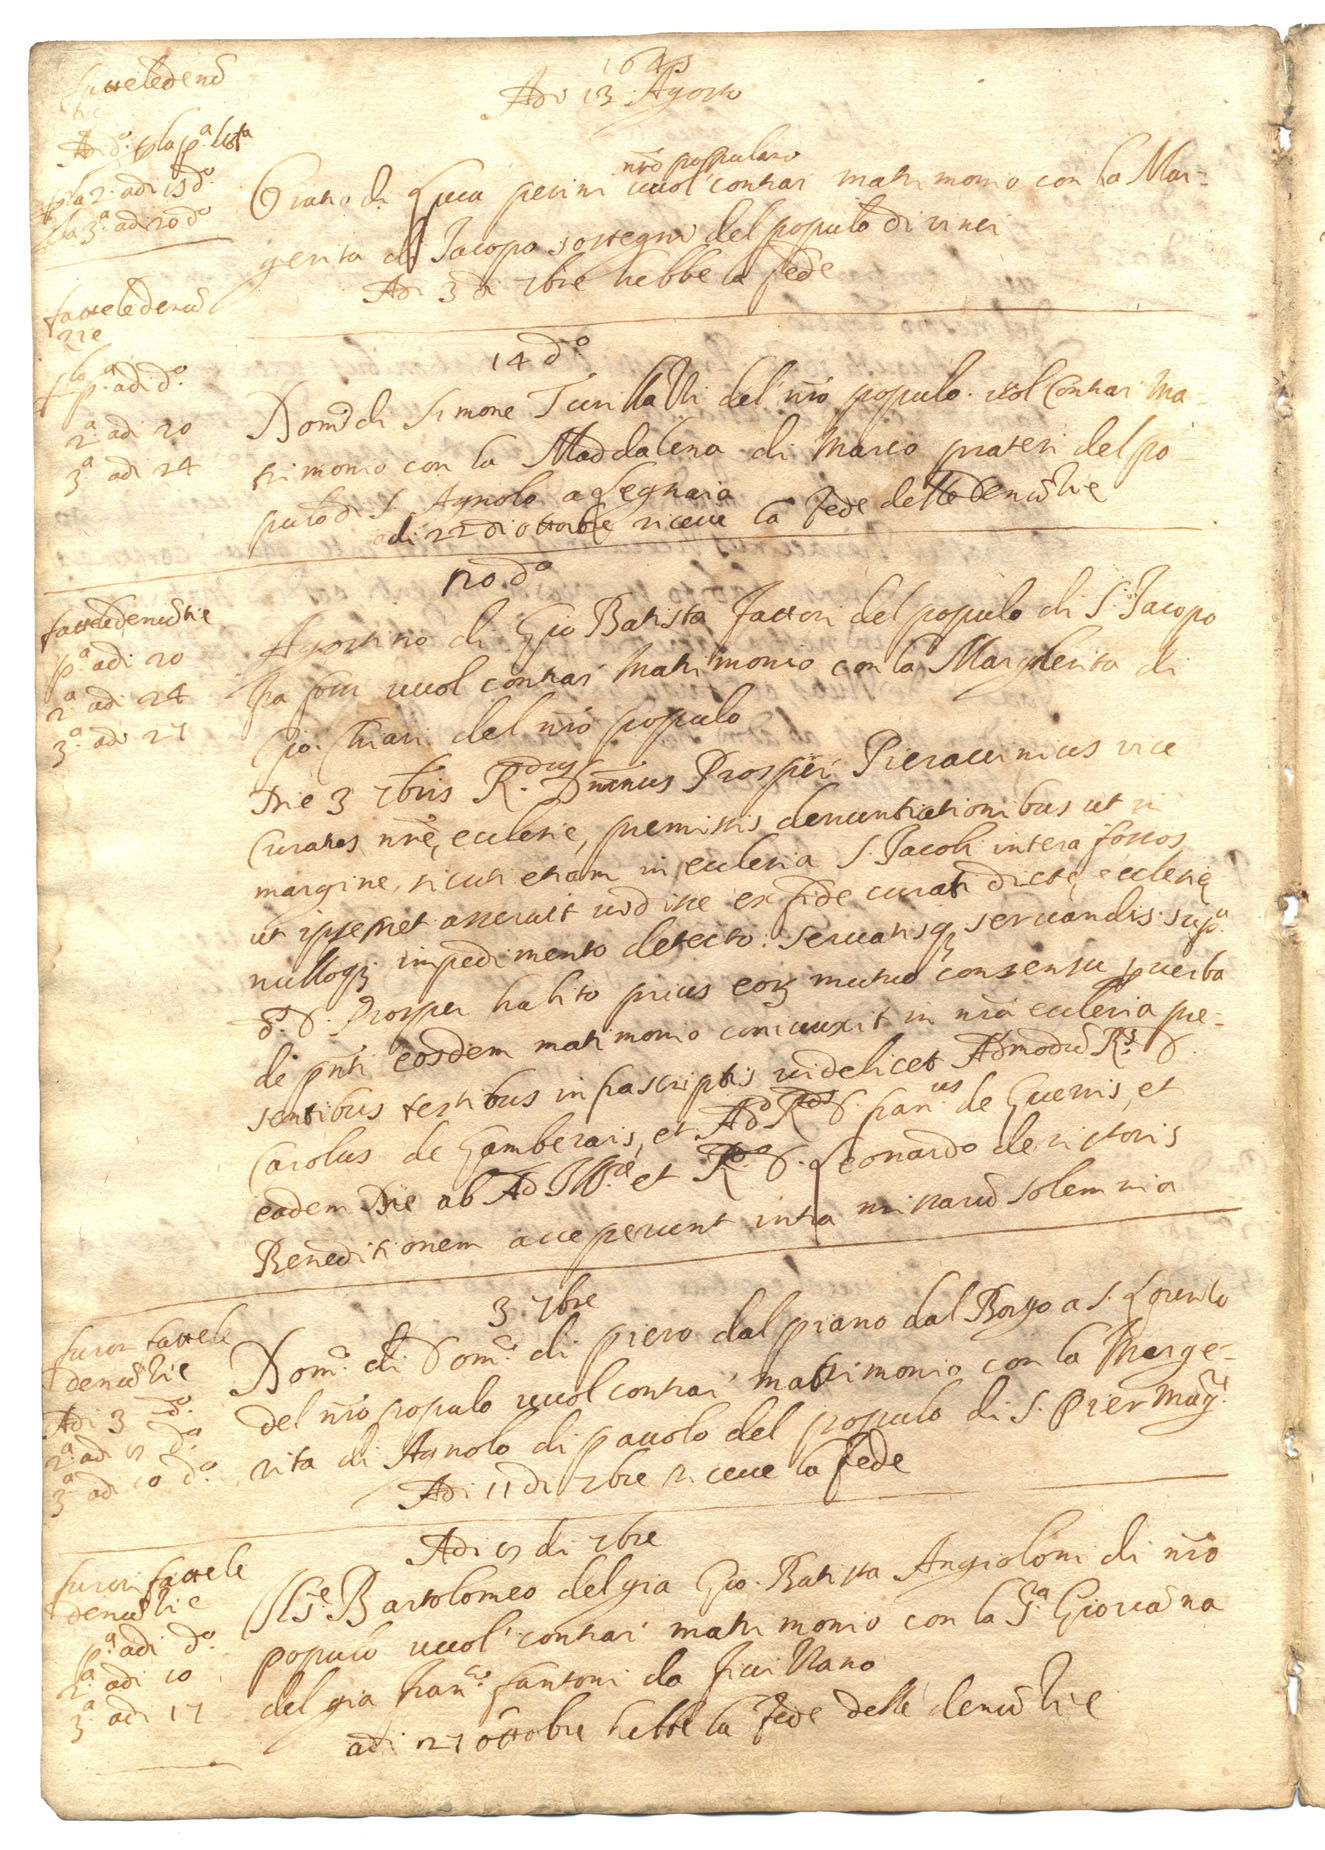 1645
Adi 13 Agosto
fatte le denū
tie
Adi d.º p la p.ª volta
p la 2.ª adi 15 d.º
p la 3.ª adi 20 d.º
nr̄o populano
Oratio di Luca perini vuol contrar matrimonio con la Mar=
gerita di Jacopo sostegni del populo di vinci
Adi 3 di 7bre hebbe la fede
fatte le denū
zie
p.ª adi d.º
2.ª adi 20
3.ª adi 24
14 d.º
Dom.º di Simone Turilla del nr̄o populo vol contrar ma=
trimonio con la Maddalena di Marco prateri del po
pulo di S. Agnolo a Legnaia
adi 22 di ottobre riceve la fede delle denūtie
20 d.º
fatte le denūtie
p.ª adi 20
2.ª adi 24
3.ª adi 27
Agostino di Gio Batista fattori del populo di S. Jacopo
fra fossi vuol contrar matrimonio con la Margherita di
Gio. Chiari del nr̄o populo
Die 3 7bris R.dus Dn̄nus Prosper Pieraccinius vice
Curatus nr̄e ecclesie, premissis denuntiationibus ut in
margine, sicuti etiam in ecclesia S. Jacobi intera fossos
ut ipsemet asseruit vidisse ex fide curati dictę ecclesię
nulloq3 impedimento detecto: servatisq3 servandis sup.ª
d.º D. Prosper habito prius eor3 mutuo consensu p verba
de pn̄ti eosdem matrimonio coniunxit in nr̄a ecclesia pre=
sentibus testibus infrascriptis videlicet Admodū R.s D.
Carolus de Gamberais, et Ad.º R.dus D. Fran.cus de Guernis, et
eadem Die ab Ad Ill.re et R.do D. Leonardo de victoris
Beneditionem acceperunt intra missarū solemnia
3. 7bre
furon fatte le
denūtie
Adi 3 d.º
2.ª adi 8 d.º
3.ª adi 10 d.º
Dom.º di Dom.º di piero dal piano dal Borgo a S. Lorento
del nr̄o populo vuol contrar matrimonio con la Marge=
rita di Agnolo di pauolo del populo di S. Pier Mag.re
Adi 11 di 7bre riceve la fede
Adi 8 di 7bre
furon fatte le
denūtie
p.ª adi d.º
2.ª adi 10
3.ª adi 17
Bartolomeo del gia Gio. Batista Angioloni di nr̄o
populo vuol contrar matrimonio con la S.ª Giovāna
del gia Fran.co fantoni da fivillano
adi 27 ottobre hebbe la fede delle denūtie